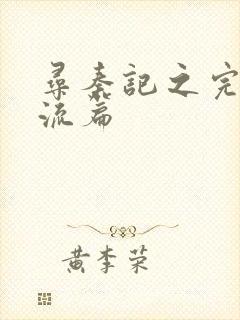 尋秦記之完
流篇
黄李荣